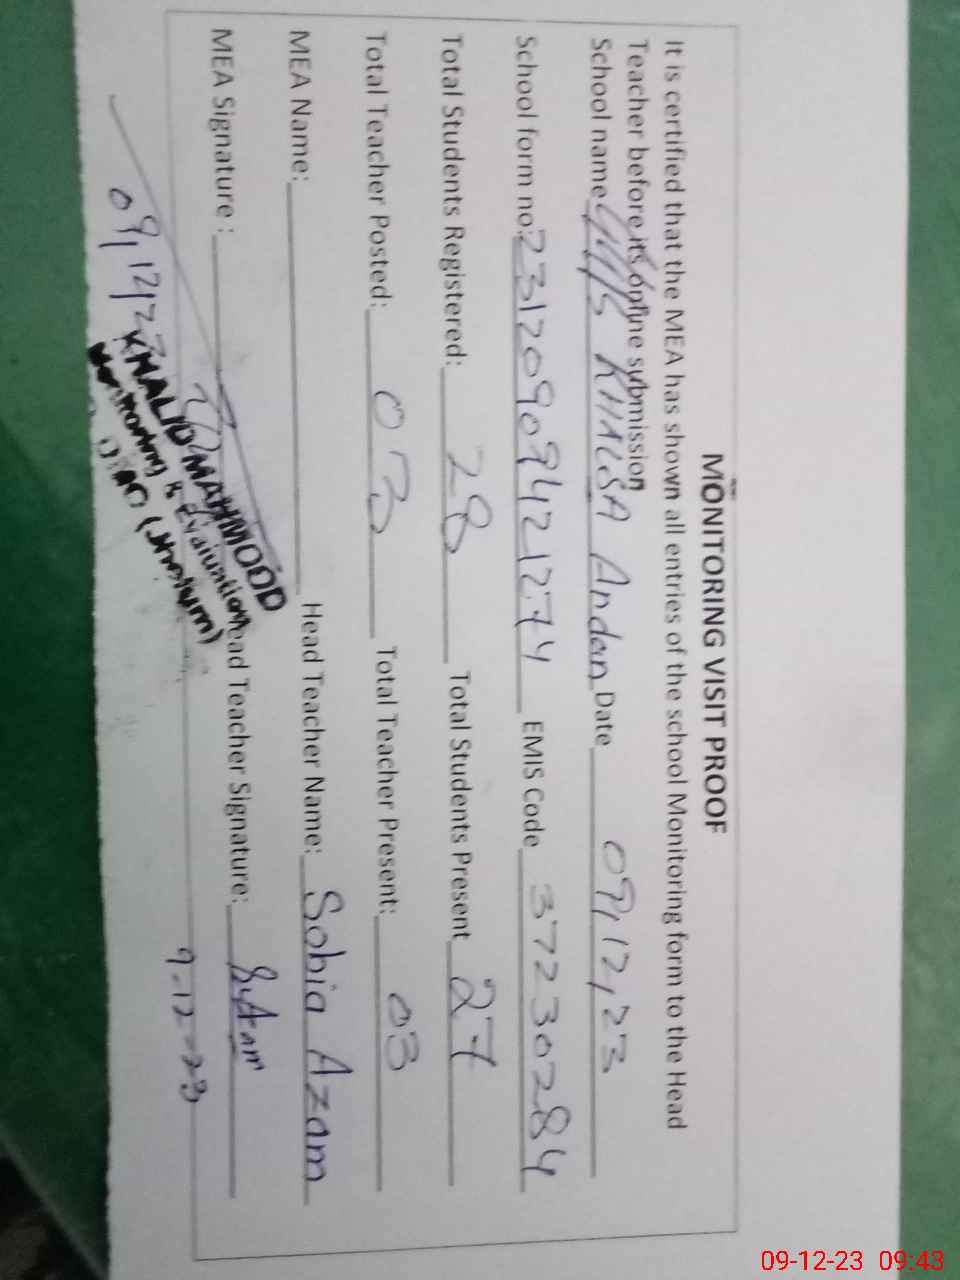 MONITORING VISIT PROOF
It is certified that the MEA has shown all entries of the school Monitoring form to the Head
Teacher before its online submission
School name KHALSA Andan Date 09,12,23
School form no: 23120909421274 EMIS Code 37230284
Total Students Registered: 28 Total Students Present 27
Total Teacher Posted: 03 Total Teacher Present: 03
MEA Name: Head Teacher Name: Sobia Azam
MEA Signature : Head Teacher Signature:
09,12,23
9-12-23
KHALID MAHMOOD
Monitoring & Evaluation
(Jhelum)
09-12-23 09:43